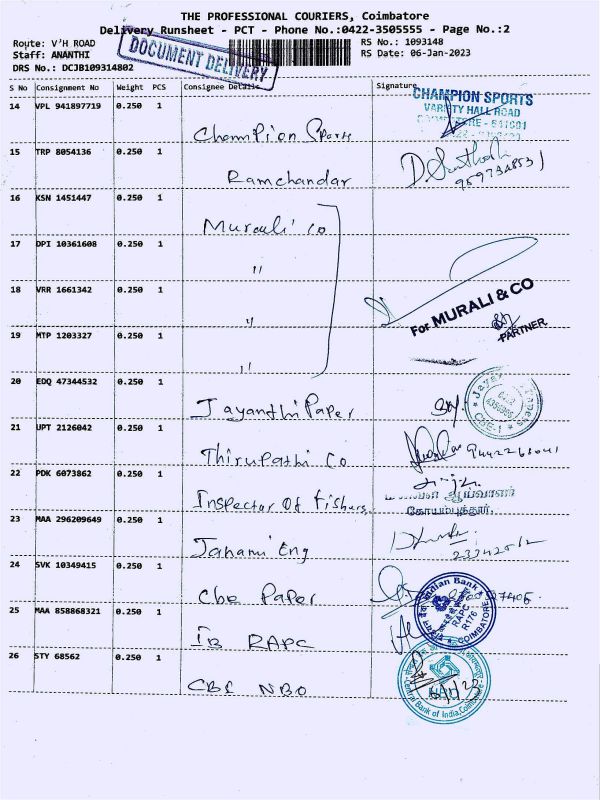 THE PROFESSIONAL COURIERS, Coimbatore
Delivery Runsheet - PCT - Phone No.:0422-3505555 - Page No.:2
Route: V'H ROAD
RS No.: 1093148
Staff: ANANTHI
RS Date: 06-Jan-2023
DRS No.: DCJB109314802
DOCUMENT DELIVERY
S No Consignment No Weight PCS Consignee Details Signature
CHAMPION SPORTS
VARIETY HALL ROAD
14 VPL 941897719 0.250 1 Champion Sports
15 TRP 8054136 0.250 1 Ramchandar
16 KSN 1451447 0.250 1 Murali Co
17 DPI 10361608 0.250 1 "
18 VRR 1661342 0.250 1 "
For MURALI & CO
PARTNER
19 MTP 1203327 0.250 1 "
20 EDQ 47344532 0.250 1 Jayanthi Paper
CBE-1
21 UPT 2126042 0.250 1 Thirupathi Co
22 PDK 6073862 0.250 1 Inspector Of Fishers
ஆய்வாளர்
கோயம்புத்தூர்.
23 MAA 296209649 0.250 1 Janami Eng
24 SVK 10349415 0.250 1 Cbe Paper
Indian Bank
RAPC
R176
COIMBATORE
25 MAA 858868321 0.250 1 IB RAPC
26 STY 68562 0.250 1 CBI NBO
Central Bank of India, Coimbatore